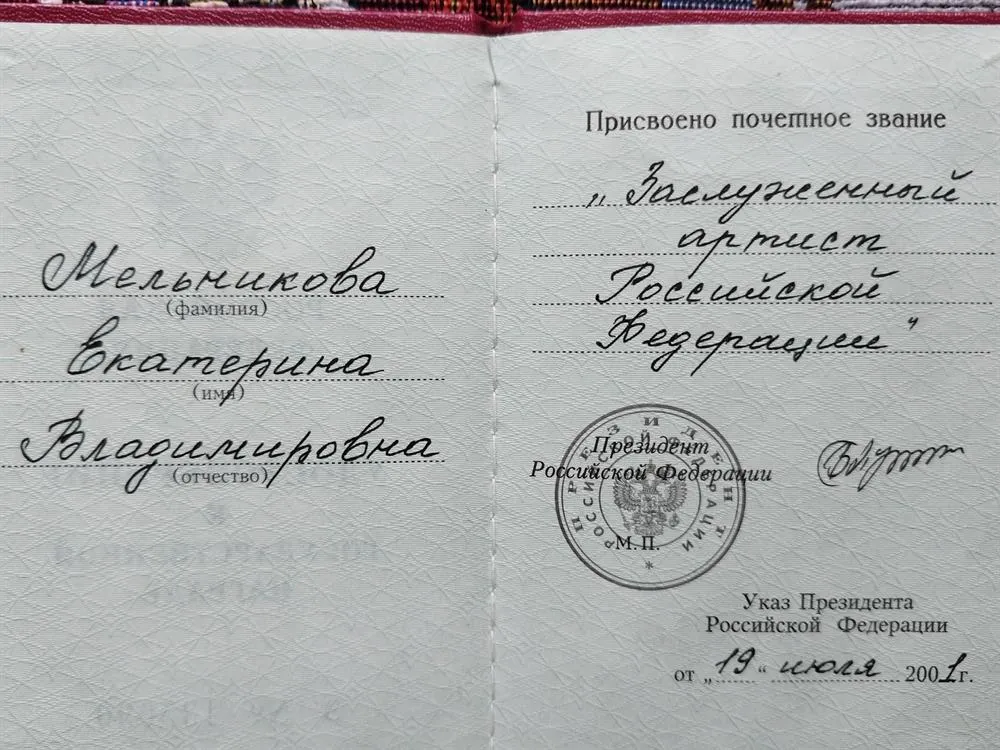 Мельникова
(фамилия)
Екатерина
(имя)
Владимировна
(отчество)
Присвоено почетное звание
„Заслуженный
артист
Российской
Федерации"
ПРЕЗИДЕНТ
РОССИЙСКОЙ ФЕДЕРАЦИИ
Президент
Российской Федерации
М.П.
*
Указ Президента
Российской Федерации
от „19“ июля 2001г.